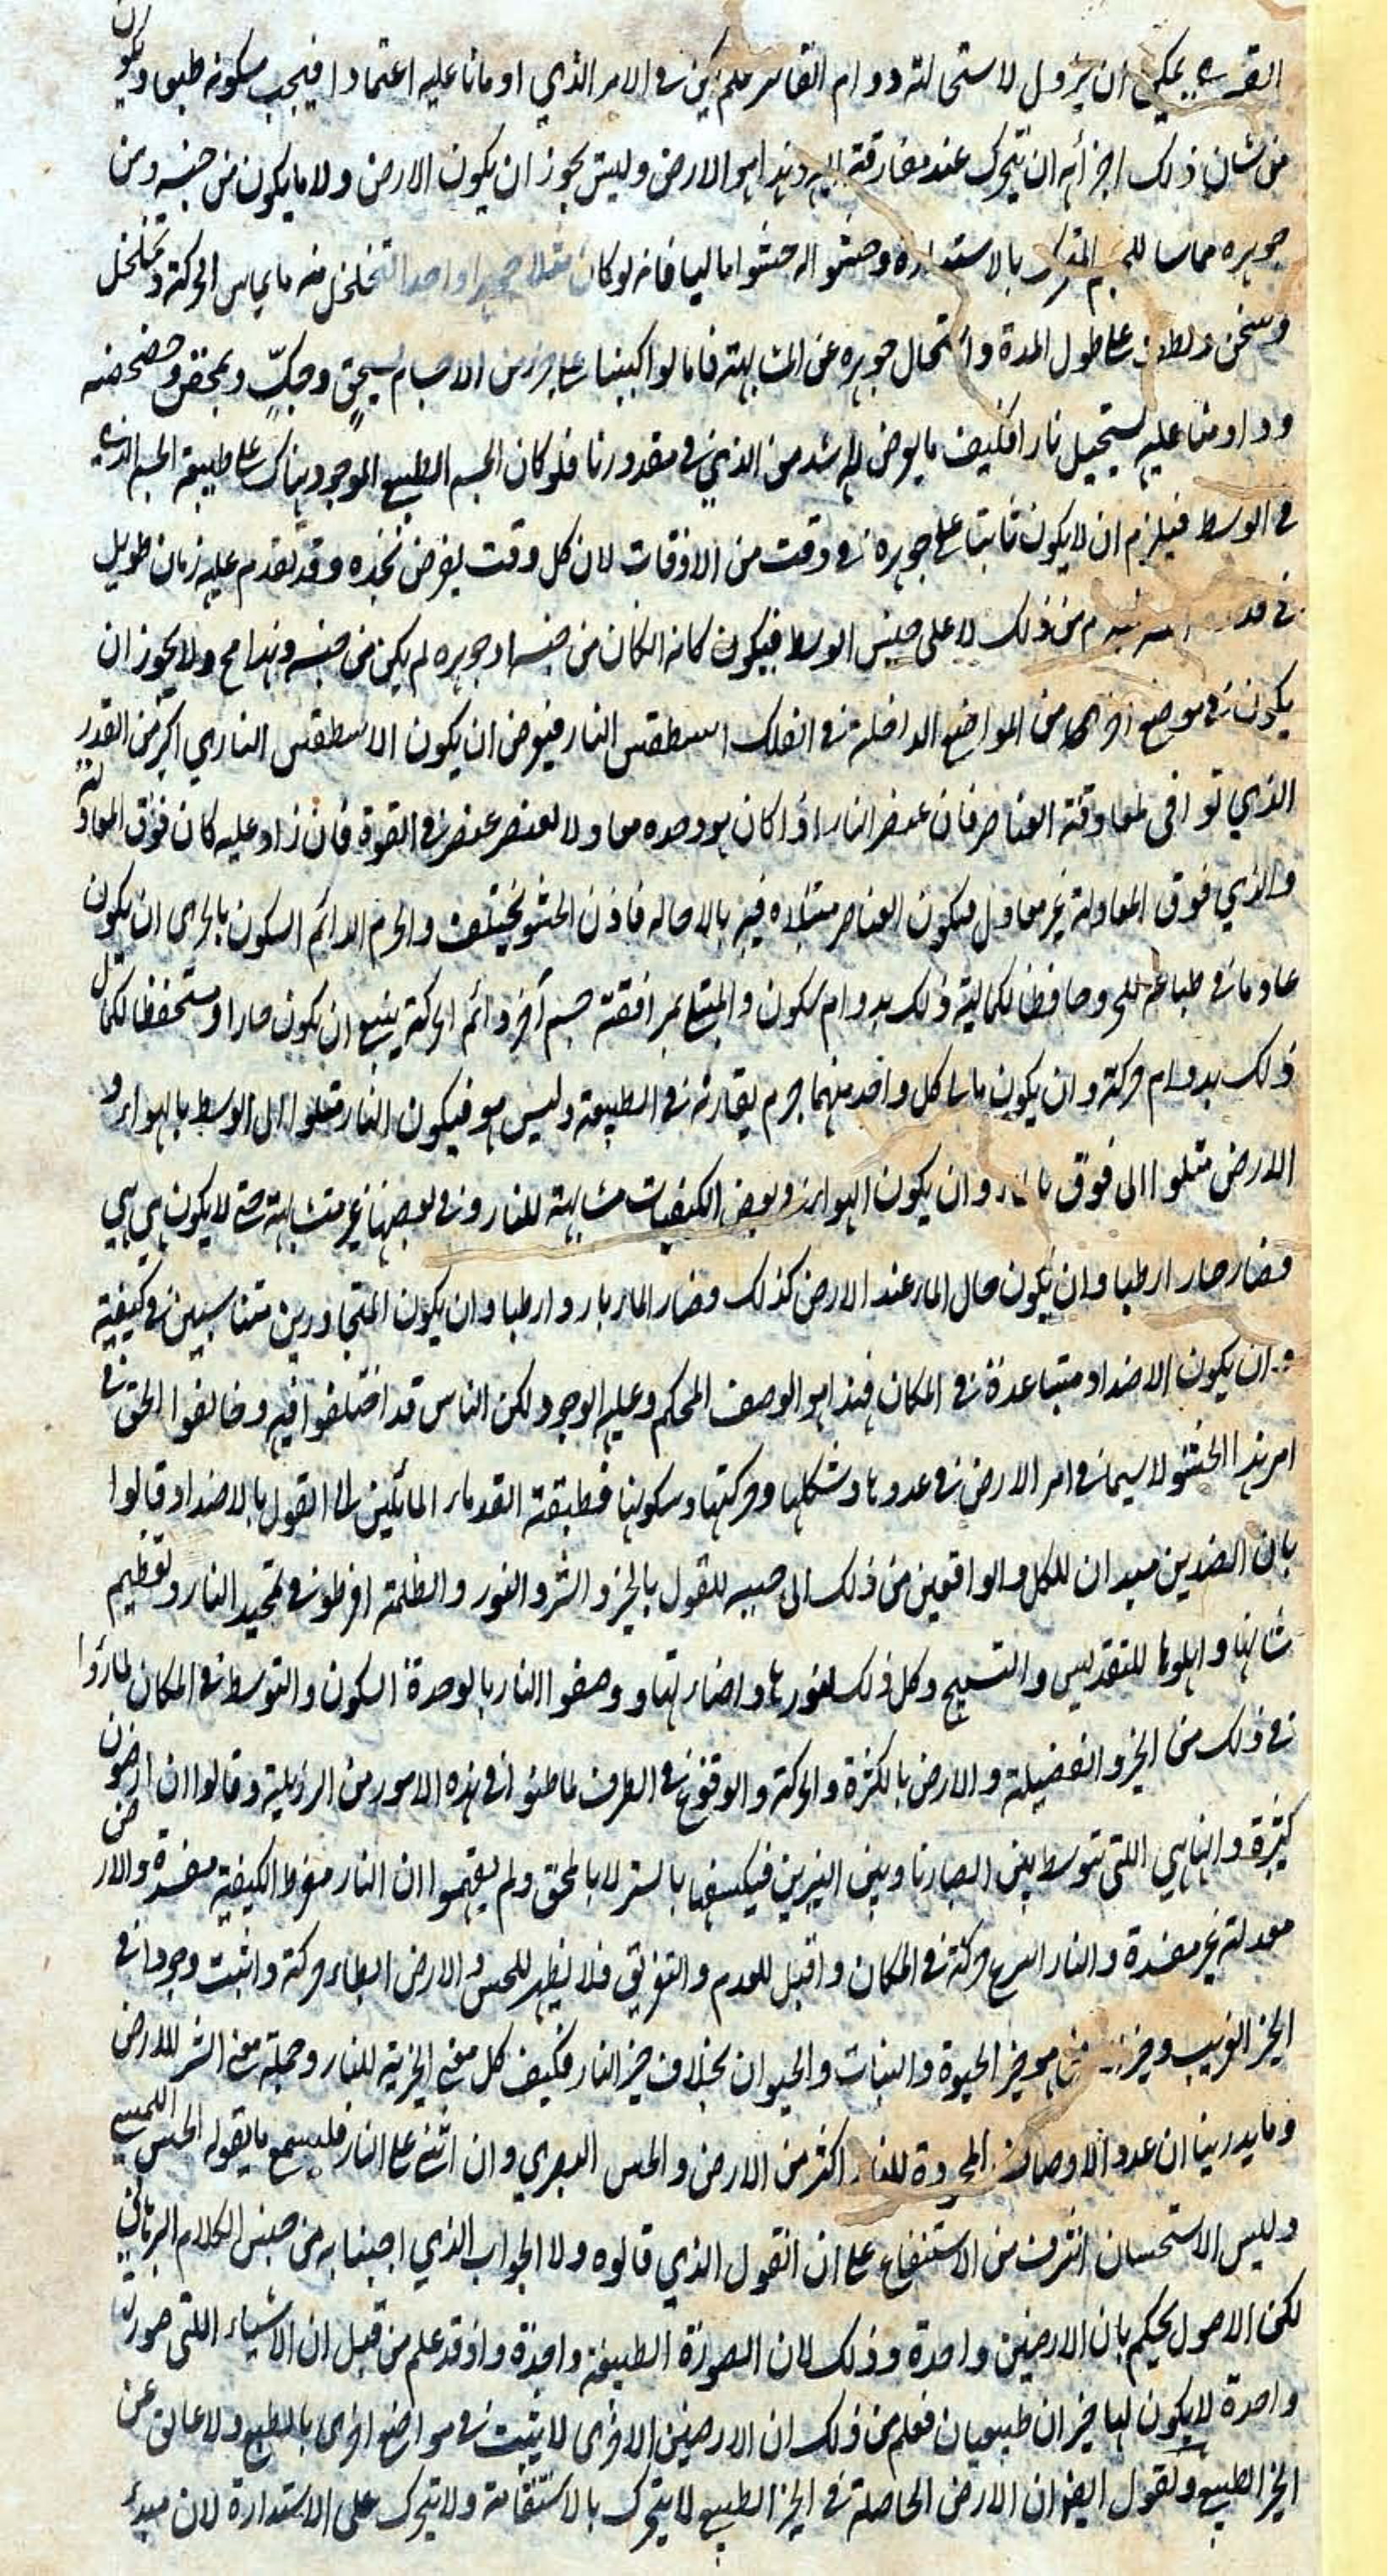 القسري يمكن ان يزول لاستحالة دوام القاسر فلم يكن في الامر الذي اومأنا عليه اعتمادا فيجب سكونه طبعا ويكون
من شان ذلك اجزائه ان يتحرك عند مفارقته اليه وهذا هو الارض وليس يجوز ان يكون الارض ولا ما يكون من جنسه ومن
جوهره مماسا للجرم المتحرك بالاستدارة وحشواله حشوا ماليا فانه لو كان مثلا جوهرا واحدا لتخلخل منه ما يماس الحركة وتخلخل
وسخن ولطف على طول المدة واستحال جوهره عن المشابهة فانا لو اكببنا على جزء من الاجسام بسحق وحك وبمخض وخضخضه
وداومنا عليه يستحيل نارا فكيف ما يعرض له اشد من الذي في مقدورنا فلو كان الجسم الطبيعي الموجود هناك على طبيعة الجسم الذي
في الوسط فيلزم ان لا يكون ثابتا على جوهره في وقت من الاوقات لان كل وقت يفرض نجده وقد تقدم عليه زمان طويل
في من ذلك لا على جنس الوسط فيكون كانه الكائن من جنسه او جوهره لم يكن من جنسه وهذا مح ولا يجوز ان
يكون في موضع اخرى من المواضع الداخلة في الفلك اسطقس النار فيعرض ان يكون الاسطقس الناري اكثر من القدر
الذي توافق لمعاوقة العناصر فان عنصر النار اذا كان هو وحده معاولا لعنصر عنصر في القوة فان زاد عليه كان فوق المعادلة
والذي فوق المعادلة غير معادل فيكون العناصر مبتلاه فيه بالاحاله فاذن الحشو مختلف والجرم الدائم السكون بالحرى ان يكون
عادما في طباعه للحر وحافظا لكمالية ذلك بدوام سكون والمبتلي بمرافقة جسم آخر دائم الحركة ينبغي ان يكون حارا ومستحفظا لكمال
ذلك بدوام حركة وان يكون ماسا كل واحد منهما جرم يقاربه في الطبيعة وليس هو فيكون النار متلوا الى الوسط بالهواء و
الارض متلوا الى فوق بالماء وان يكون الهواء في بعض الكيفيات مشابهة للنار وفي بعضها غير متشابهة حتى لا يكون هي هي
فصار حارا رطبا وان يكون حال الماء عند الارض كذلك فصار الماء باردا رطبا وان يكون المتجاورين متناسبين في كيفية
وان يكون الاضداد متباعدة في المكان فهذا هو الوصف المحكم وعليه الوجود لكن الناس قد اختلفوا فيه وخالفوا الحق في
امر هذا الحشو لا سيما في امر الارض في عددها وشكلها وحركتها وسكونها فطبقة القدماء المائلين الى القول بالاضداد وقالوا
بان الضدين مبدان للكل والواقعين من ذلك الى جنبه للقول بالخير والشر والنور والظلمة افرطوا في تمجيد النار وتعظيم
شانها واهلوها للتقديس والتسبيح وكل ذلك لنورها واضاءتها ووصفوا النار بالوحدة السكون والتوسط في المكان لما راوا
في ذلك من الخير والفضيلة والارض بالكثرة والحركة والوقوع في الطرف لما ظنوا في هذه الامور من الرذيلة وقالوا ان ارضون
كثيرة وانها هي اللتي تتوسط بين ابصارنا وبين النيرين فيكسفها بالستر لا بالمحق ولم يفهموا ان النار مفرط الكيفية مفسدة والارض
معدلة غير مفسدة والنار اسرع حركة في المكان واقبل للعدم والتفريق فلا يظهر للحس والارض ابطاء حركة واثبت وجودا في
الحيز الغريب وحيز هو حيز الحيوة والنبات والحيوان بخلاف حيز النار فكيف كل معنى الخيرية للنار وجملة معنى الشر للارض
وما يدرينا ان عدد الاوصاف المحمودة للنار اكثر من الارض والحس البصري وان اثنى على النار فليسمع ما يقوله الحس اللمسي
وليس الاستحسان اشرف من الاستنفاع على ان القول الذي قالوه ولا الجواب الذي اجبنا به من جنس الكلام البرهاني
لكن الاصول يحكم بان الارضين واحدة وذلك لان الصورة الطبيعية واحدة واذ قد علم من قبل ان الاشياء اللتي صورتها
واحدة لا يكون لها حيزان طبيعيان فعلم من ذلك ان الارضين الاخرى لا يثبت في مواضع اخرى بالطبع ولا عائق عن
الحيز الطبيعي ونقول ايضا ان الارض الحاصلة في الحيز الطبيعي لا يتحرك بالاستقامة ولا يتحرك على الاستدارة لان مبدء